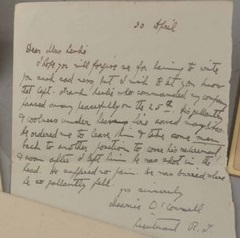 30 April
Dear Miss Leslie
I hope you will forgive me for having to write
you such sad news but I wish to let you know
that Capt. Frank Leslie who commanded my company
passed away peacefully on the 25th his gallantry
& coolness under heavy fire saved many lives
He ordered me to leave him & take some men
back to another position to cover his retirement
& soon after I left him he was shot in the
head. He suffered no pain. He was buried where
he so gallantly fell.
yrs sincerely
O'Connell
Lieutenant R.